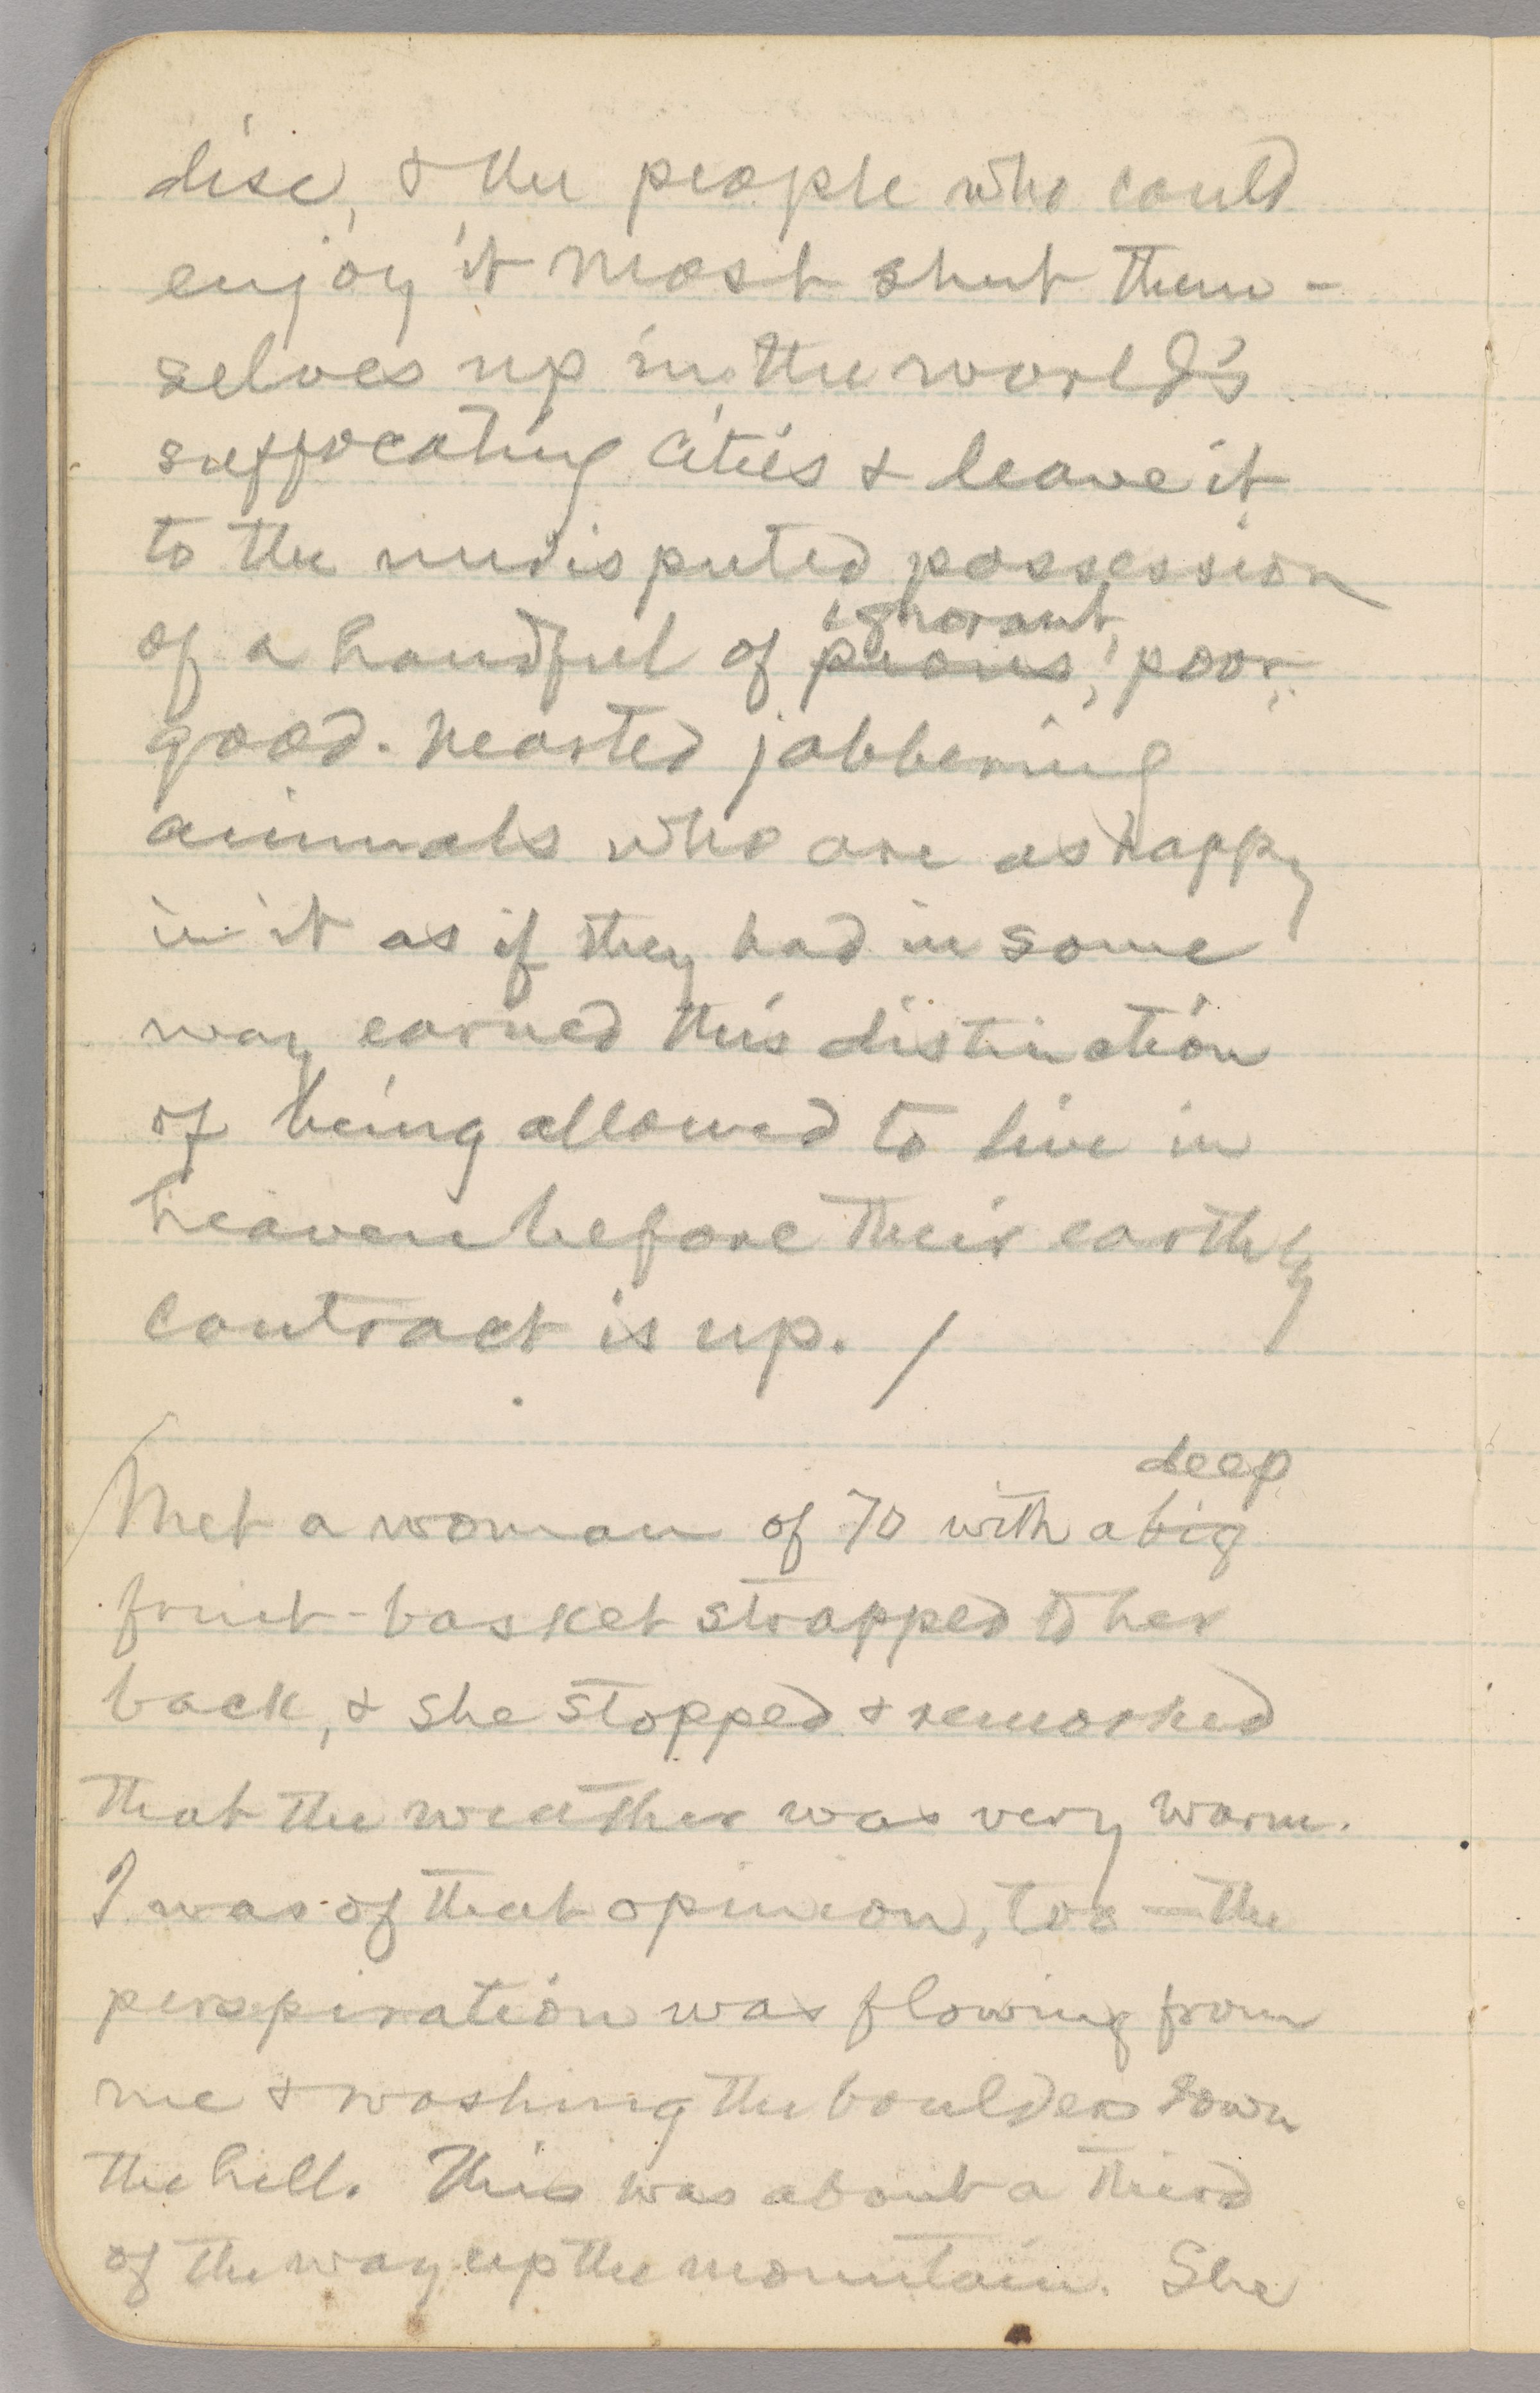 dise, & the people who could
enjoy it most shut them-
selves up in the world's
suffocating cities & leave it
to the undisputed possession
ignorant,
of a handful of pious, poor,
good-hearted jabbering
animals who are as happy
in it as if they had in some
way earned this distinction
of being allowed to live in
heaven before their earthly
contract is up. /
deep
Met a woman of 70 with a big
fruit-basket strapped to her
back, & she stopped & remarked
that the weather was very warm.
I was of that opinion, too — the
perspiration was flowing from
me & washing the boulders down
the hill. This was about a third
of the way up the mountain. She